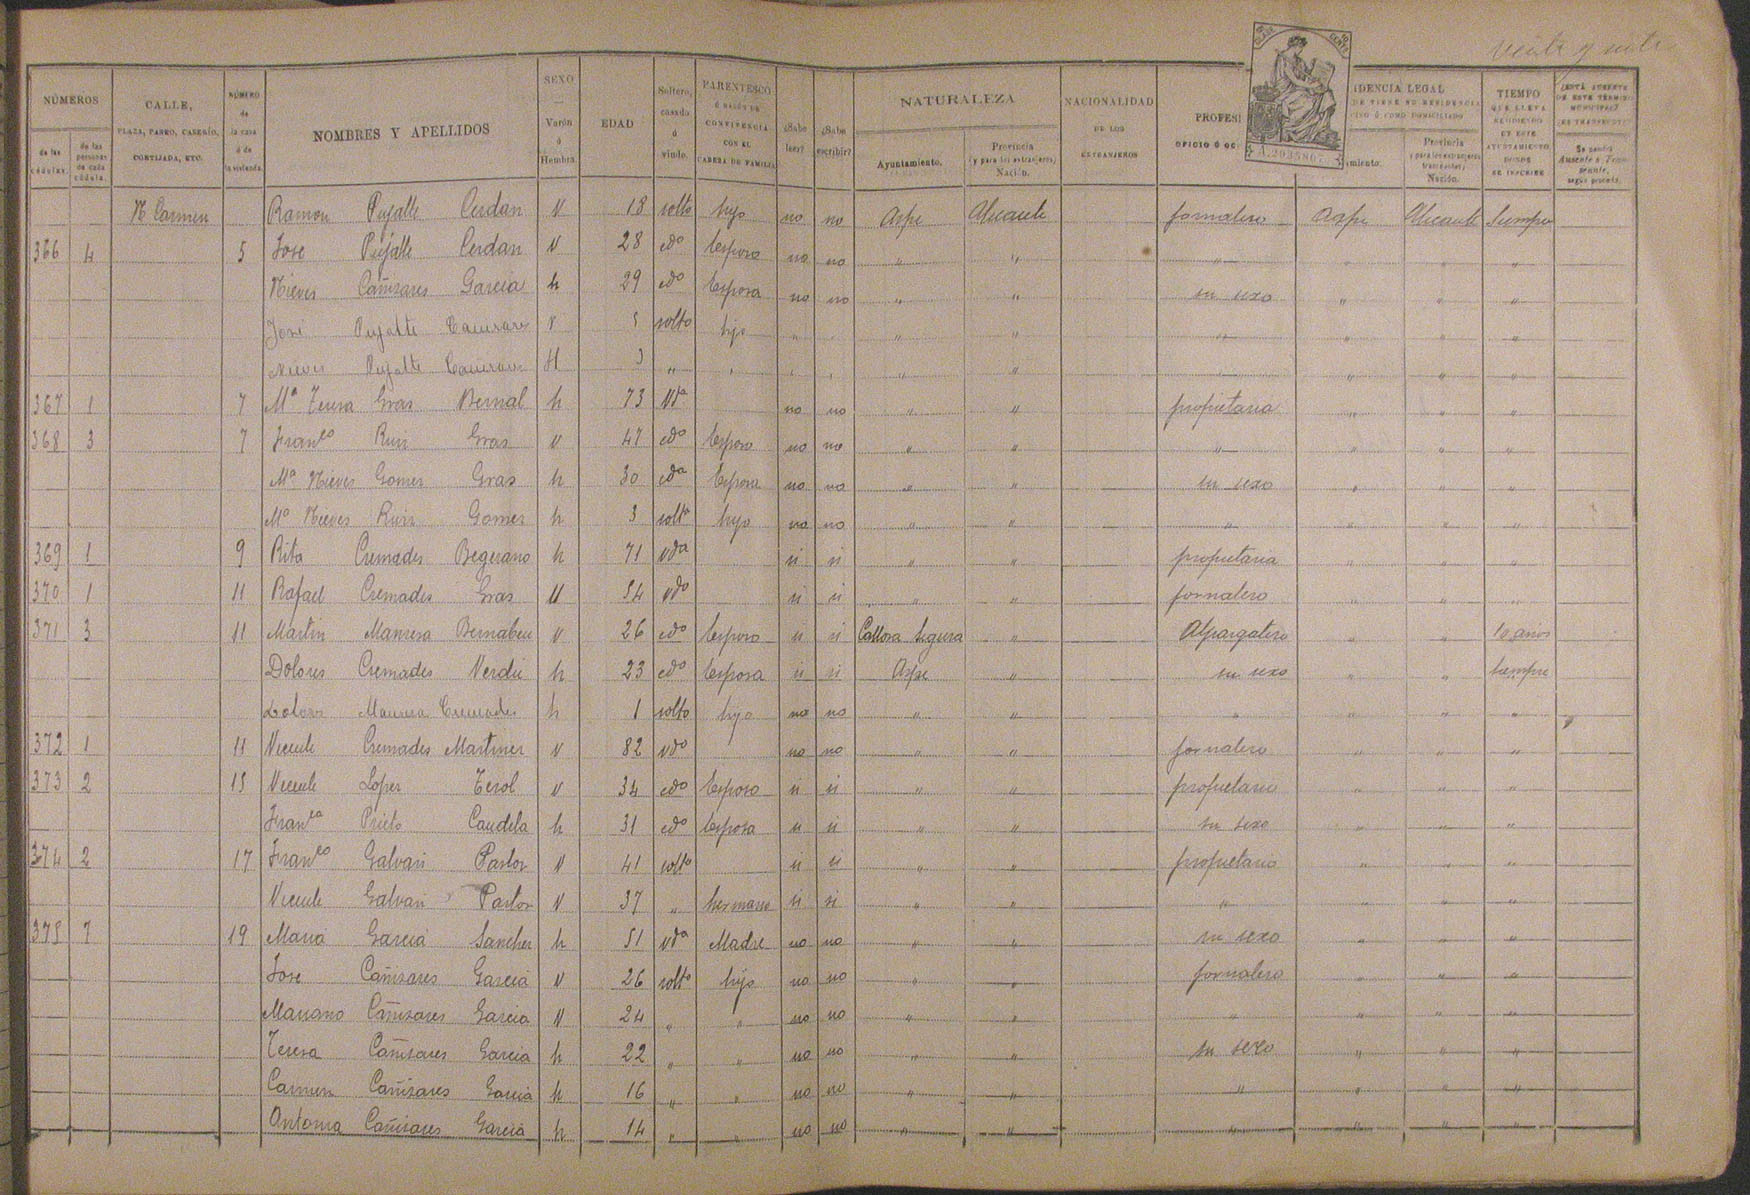 NÚMEROS | CALLE, PLAZA, PASEO, CASERÍO, CORTIJADA, ETC. | NÚMERO de la casa ó de la vivienda. | NOMBRES Y APELLIDOS | SEXO — Varón ó Hembra. | EDAD | Soltero, casado ó viudo. | PARENTESCO Ó RAZÓN DE CONVIVENCIA CON EL CABEZA DE FAMILIA | ¿Sabe leer? | ¿Sabe escribir? | NATURALEZA | NACIONALIDAD DE LOS EXTRANJEROS | PROFESI | IDENCIA LEGAL | TIEMPO QUE LLEVA RESIDIENDO EN ESTE AYUNTAMIENTO DONDE SE INSCRIBE | ¿ESTÁ AUSENTE DE ESTE TÉRMINO MUNICIPAL?
de las cédulas. | de las personas de cada cédula. | Ayuntamiento. | Provincia (y para los extranjeros) Nación. | OFICIO Ó OC | miento. | Provincia y para los extranjeros transeuntes, Nación.
A.2935807
N Carmen | Ramon Pujalte Cerdan | V | 18 | solto | hijo | no | no | Aspe | Alicante | jornalero | Aspe | Alicante | Siempre
366 | 4 | 5 | Jose Pujalte Cerdan | V | 28 | cdo | Esposo | no | no | " | " | " | " | " | "
Nieves Cañizares Garcia | h | 29 | cdo | Esposa | no | no | " | " | su sexo | " | " | "
José Pujalte Cañizares | V | 5 | solto | hijo | " | " | " | " | " | " | " | "
Nieves Pujalte Cañizares | H | 3 | " | " | " | " | " | " | " | " | "
367 | 1 | 7 | Mª Teresa Gras Bernal | h | 73 | Vda | no | no | " | " | propietaria | " | " | "
368 | 3 | 7 | Franco Ruiz Gras | V | 47 | cdo | Esposo | no | no | " | " | " | " | " | "
Mª Nieves Gomez Gras | h | 30 | cda | Esposa | no | no | " | " | su sexo | " | " | "
Mª Nieves Ruiz Gomez | h | 3 | solta | hijo | no | no | " | " | " | " | " | "
369 | 1 | 9 | Rita Cremades Begerano | h | 71 | vda | si | si | " | " | propietaria | " | " | "
370 | 1 | 11 | Rafael Cremades Gras | V | 54 | vdo | si | si | " | " | jornalero | " | " | "
371 | 3 | 11 | Martin Manresa Bernabeu | V | 26 | cdo | Esposo | si | si | Callosa Segura | " | Alpargatero | " | " | 10 años
Dolores Cremades Verdú | h | 23 | cdo | Esposa | si | si | Aspe | " | su sexo | " | " | Siempre
Dolores Manresa Cremades | h | 1 | solto | hijo | no | no | " | " | " | " | " | "
372 | 1 | 11 | Vicente Cremades Martinez | V | 82 | vdo | no | no | " | " | jornalero | " | " | "
373 | 2 | 15 | Vicente Lopez Terol | V | 34 | cdo | Esposo | si | si | " | " | propietario | " | " | "
Franca Prieto Candela | h | 31 | cdo | Esposa | si | si | " | " | su sexo | " | " | "
374 | 2 | 17 | Franco Galvañ Pastor | V | 41 | solto | si | si | " | " | propietario | " | " | "
Vicente Galvañ Pastor | V | 37 | " | hermano | si | si | " | " | " | " | " | "
375 | 7 | 19 | Maria Garcia Sanchez | h | 51 | vda | Madre | no | no | " | " | su sexo | " | " | "
Jose Cañizares Garcia | V | 26 | solto | hijo | no | no | " | " | jornalero | " | " | "
Mariano Cañizares Garcia | V | 24 | " | " | no | no | " | " | " | " | " | "
Teresa Cañizares Garcia | h | 22 | " | " | no | no | " | " | su sexo | " | " | "
Carmen Cañizares Garcia | h | 16 | " | " | no | no | " | " | " | " | " | "
Antonia Cañizares Garcia | h | 14 | " | " | no | no | " | " | " | " | " | "